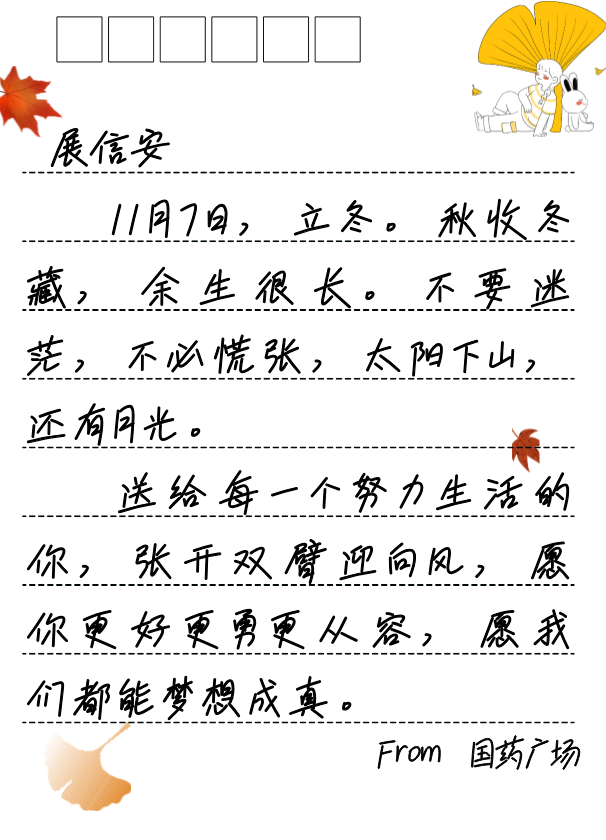 展信安
11月7日，立冬。秋收冬
藏，余生很长。不要迷
茫，不必慌张，太阳下山，
还有月光。
送给每一个努力生活的
你，张开双臂迎向风，愿
你更好更勇更从容，愿我
们都能梦想成真。
From 国药广场